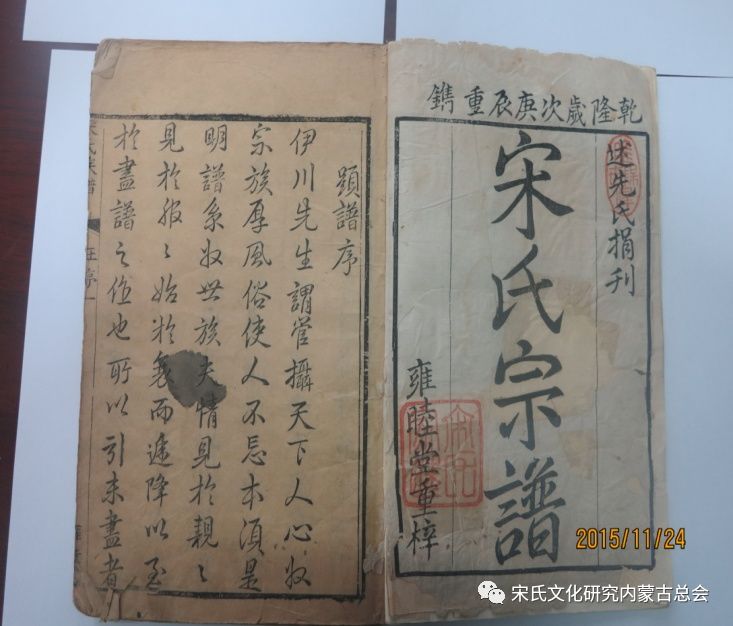 乾隆歲次庚辰重鐫
述先氏捐刊
宋氏宗譜
雍睦堂重梓
題譜序
伊川先生謂管攝天下人心收
宗族厚風俗使人不忘本須是
明譜系收世族夫情見於親〻
見於服〻始於衰而遞降以至
於盡譜之作也所以引未盡者
氏族譜
序一
2015/11/24
宋氏文化研究内蒙古总会